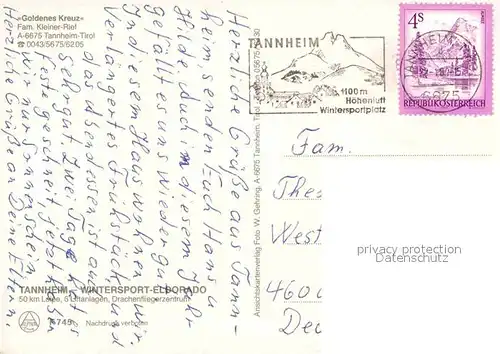 »Goldenes Kreuz«
Fam. Kleiner-Rief
A-6675 Tannheim-Tirol
☎ 0043/5675/6205
Herzliche Grüße aus Tann-
heim senden Euch Hans u.
Hilde, doch in diesem Jahr
gefällt es uns wieder gut.
In diesem Haus wohnen wir.
Verlängertes Frühstück und
das Abendessen ist auch
sehr gut. Zwei Tage hat es
geschneit jetzt haben
wir nur Sonnenschein.
Herzliche Grüße an Deine Eltern.
TANNHEIM WINTERSPORT-ELDORADO
50 km Loipe, 6 Liftanlagen, Drachenfliegerzentrum
Nachdruck verboten
Ansichtskartenverlag Foto W. Gehring, A-6675 Tannheim, Tirol
TANNHEIM
1100 m
Höhenluft
Wintersportplatz
TANNHEIM
6675
4 S
REPUBLIK ÖSTERREICH
Fam.
Thes
West
4600
Deu
privacy protection
Datenschutz